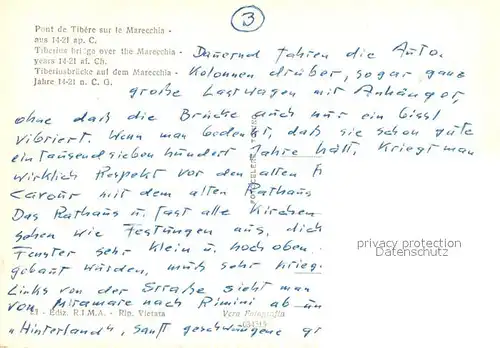 3
Pont de Tibère sur le Marecchia -
aus 14-21 ap. C.
Tiberius bridge over the Marecchia -
years 14-21 af. Ch.
Tiberiusbrücke auf dem Marecchia -
Jahre 14-21 n. C. G.
Dauernd fahren die Auto-
Kolonnen drüber, sogar ganz
große Lastwagen mit Anhänger,
ohne daß die Brücke auch nur ein bissl
vibriert. Wenn man bedenkt, daß sie schon gute
eintausendsieben hundert Jahre hält, kriegt man
wirklich Respekt vor den alten
Cavour mit dem alten Rathaus
Das Rathaus u. fast alle Kirchen
sehen wie Festungen aus, dich
Fenster sehr klein u. hoch oben
gebaut wurden, muß sehr krieg
Links von der Straße sieht man
von Miramare nach Rimini ab
"Hinterland", sanft geschwungene
privacy protection
Datenschutz
21 - Ediz. R.I.M.A. - Rip. Vietata
Vera Fotografia